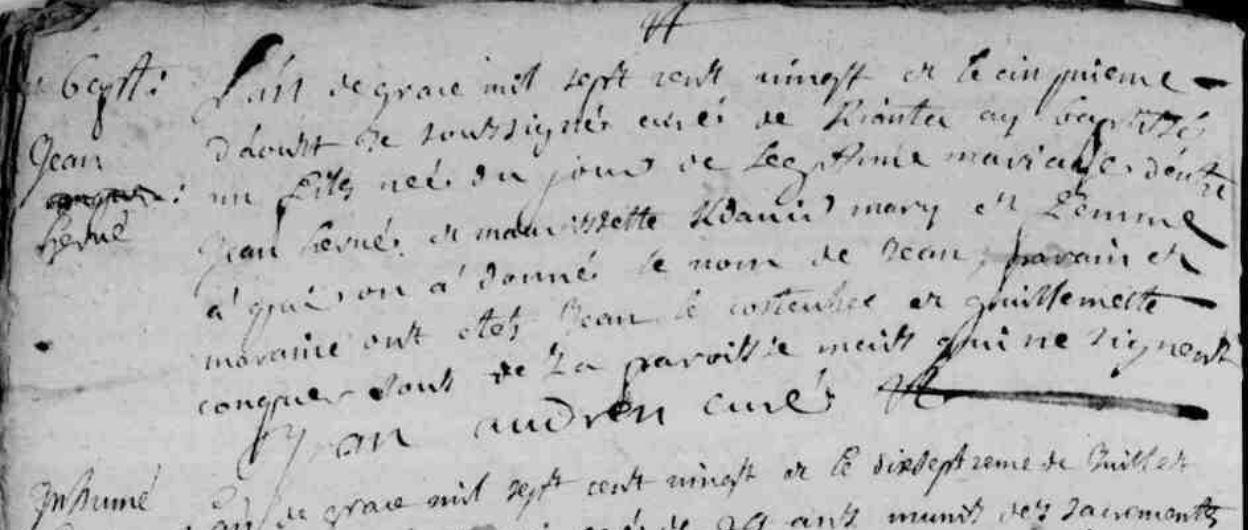 bapt:
Jean
hervé
L'an de grace mil sept cent vingt et le cinquieme
d'aoust Je soussignés curés de Kianter ay baptissés
un fils neé du jour de legitime mariage d'entre
Jean hervé et mauricette Kdaniel mary et femme
a qui on a donné le nom de Jean, parain et
maraine ont etes Jean le et guillemette
conquer tout de la paroisse meuts qui ne signent
Jean audren curé
Inhumé
L'an de grace mil sept cent vingt et le dixseptieme de Juillet
de ans munit des sacrements